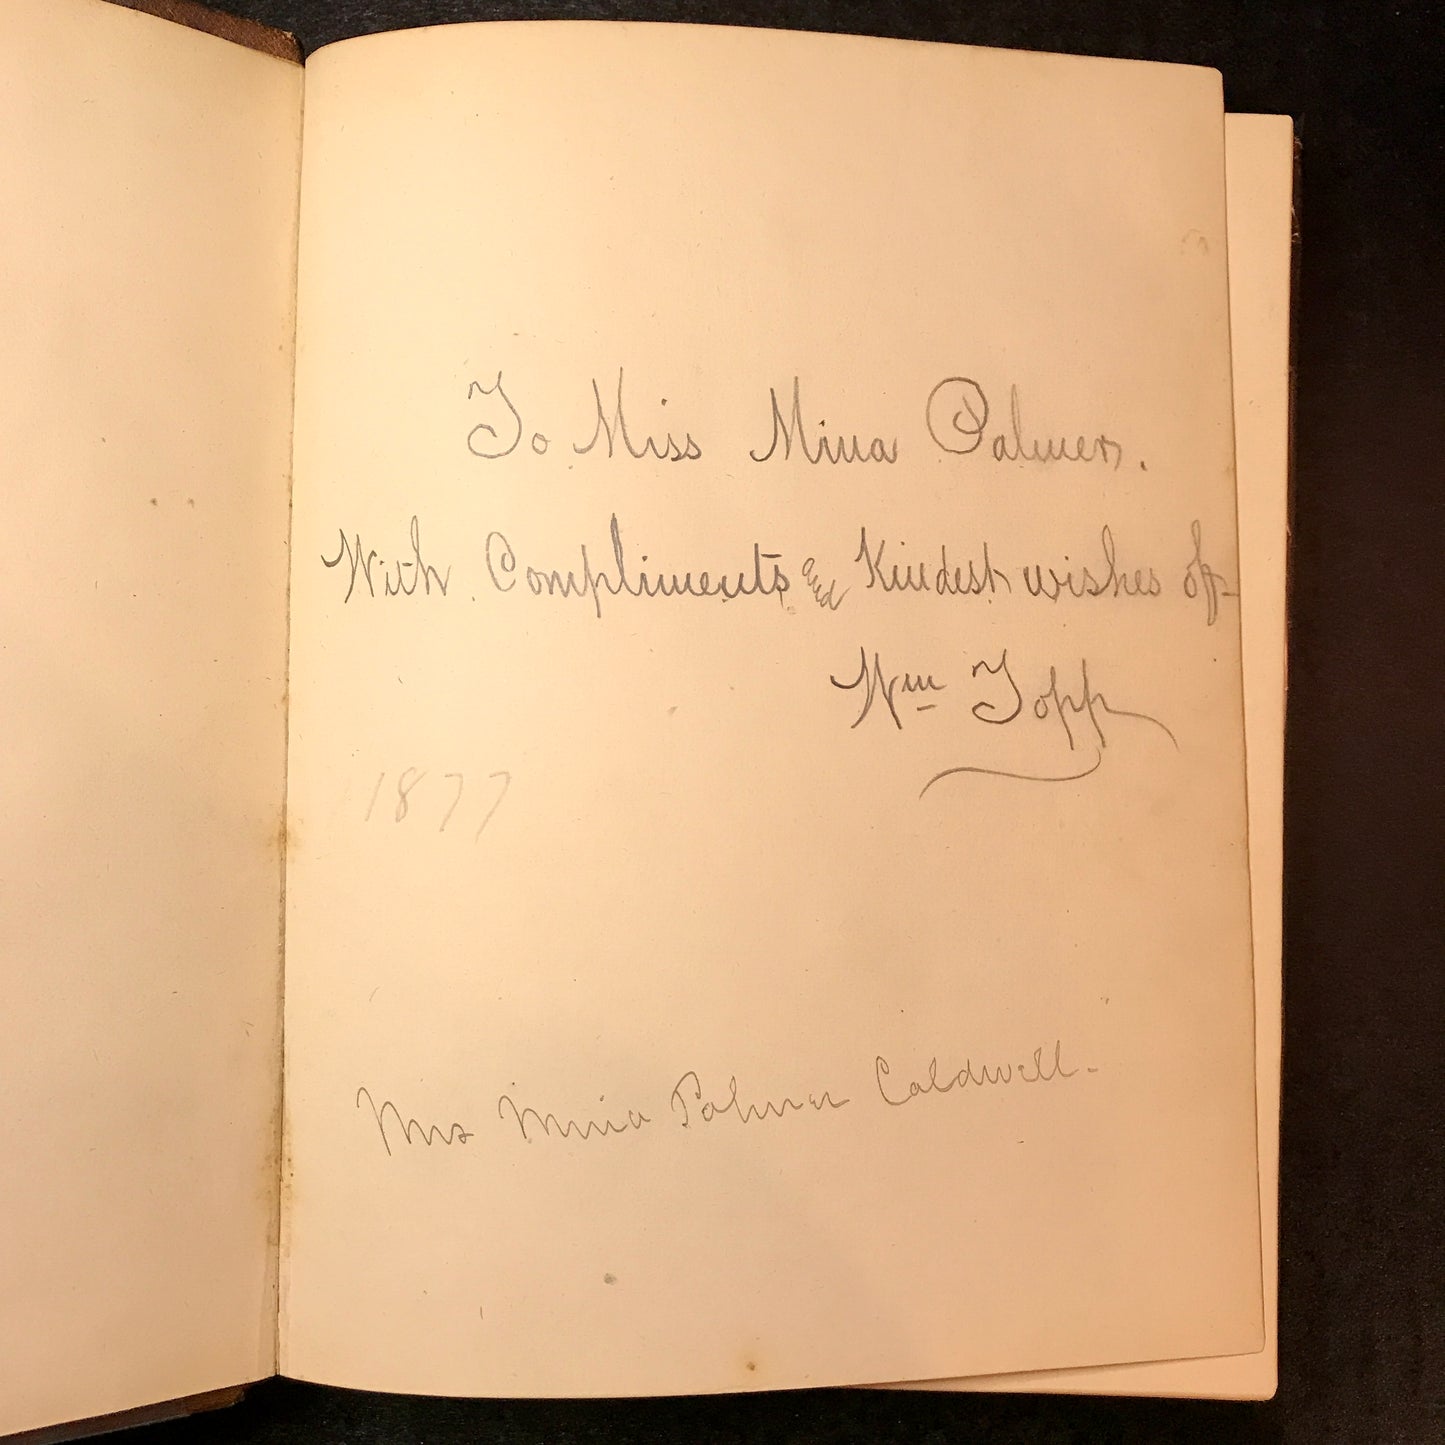 To Miss Mina Palmer.
With Compliments and Kindest wishes of
Wm Topp
1877
Mrs Mina Palmer Caldwell.